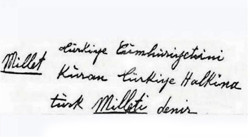 Millet
türkiye Cümhuriyetini
Kuran türkiye Halkına
türk Milleti denir